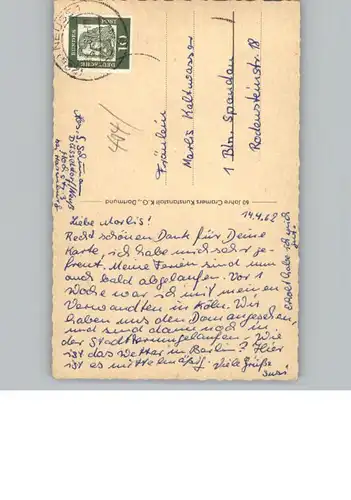 Liebe Marlis!
14.4.62
Recht schönen Dank für Deine
Karte, ich habe mich sehr ge-
freut. Meine Ferien sind nun
auch bald abgelaufen. Vor 1
Woche war ich mit meinen
Verwandten in Köln. Wir
haben uns den Dom angesehen,
und sind dann noch in
der Stadt herumgelaufen. Wie
ist das Wetter in Berlin? Hier
ist es mittelmäßig. Viele Grüße
Susi
Erholt habe ich mich
gut.
Fräulein
Marlis Kaltwasser
1 Bln. Spandau
Rodensteinstr. 18
404/
60 Jahre Cramers Kunstanstalt K.G., Dortmund
DEUTSCHE
BUNDESPOST
10